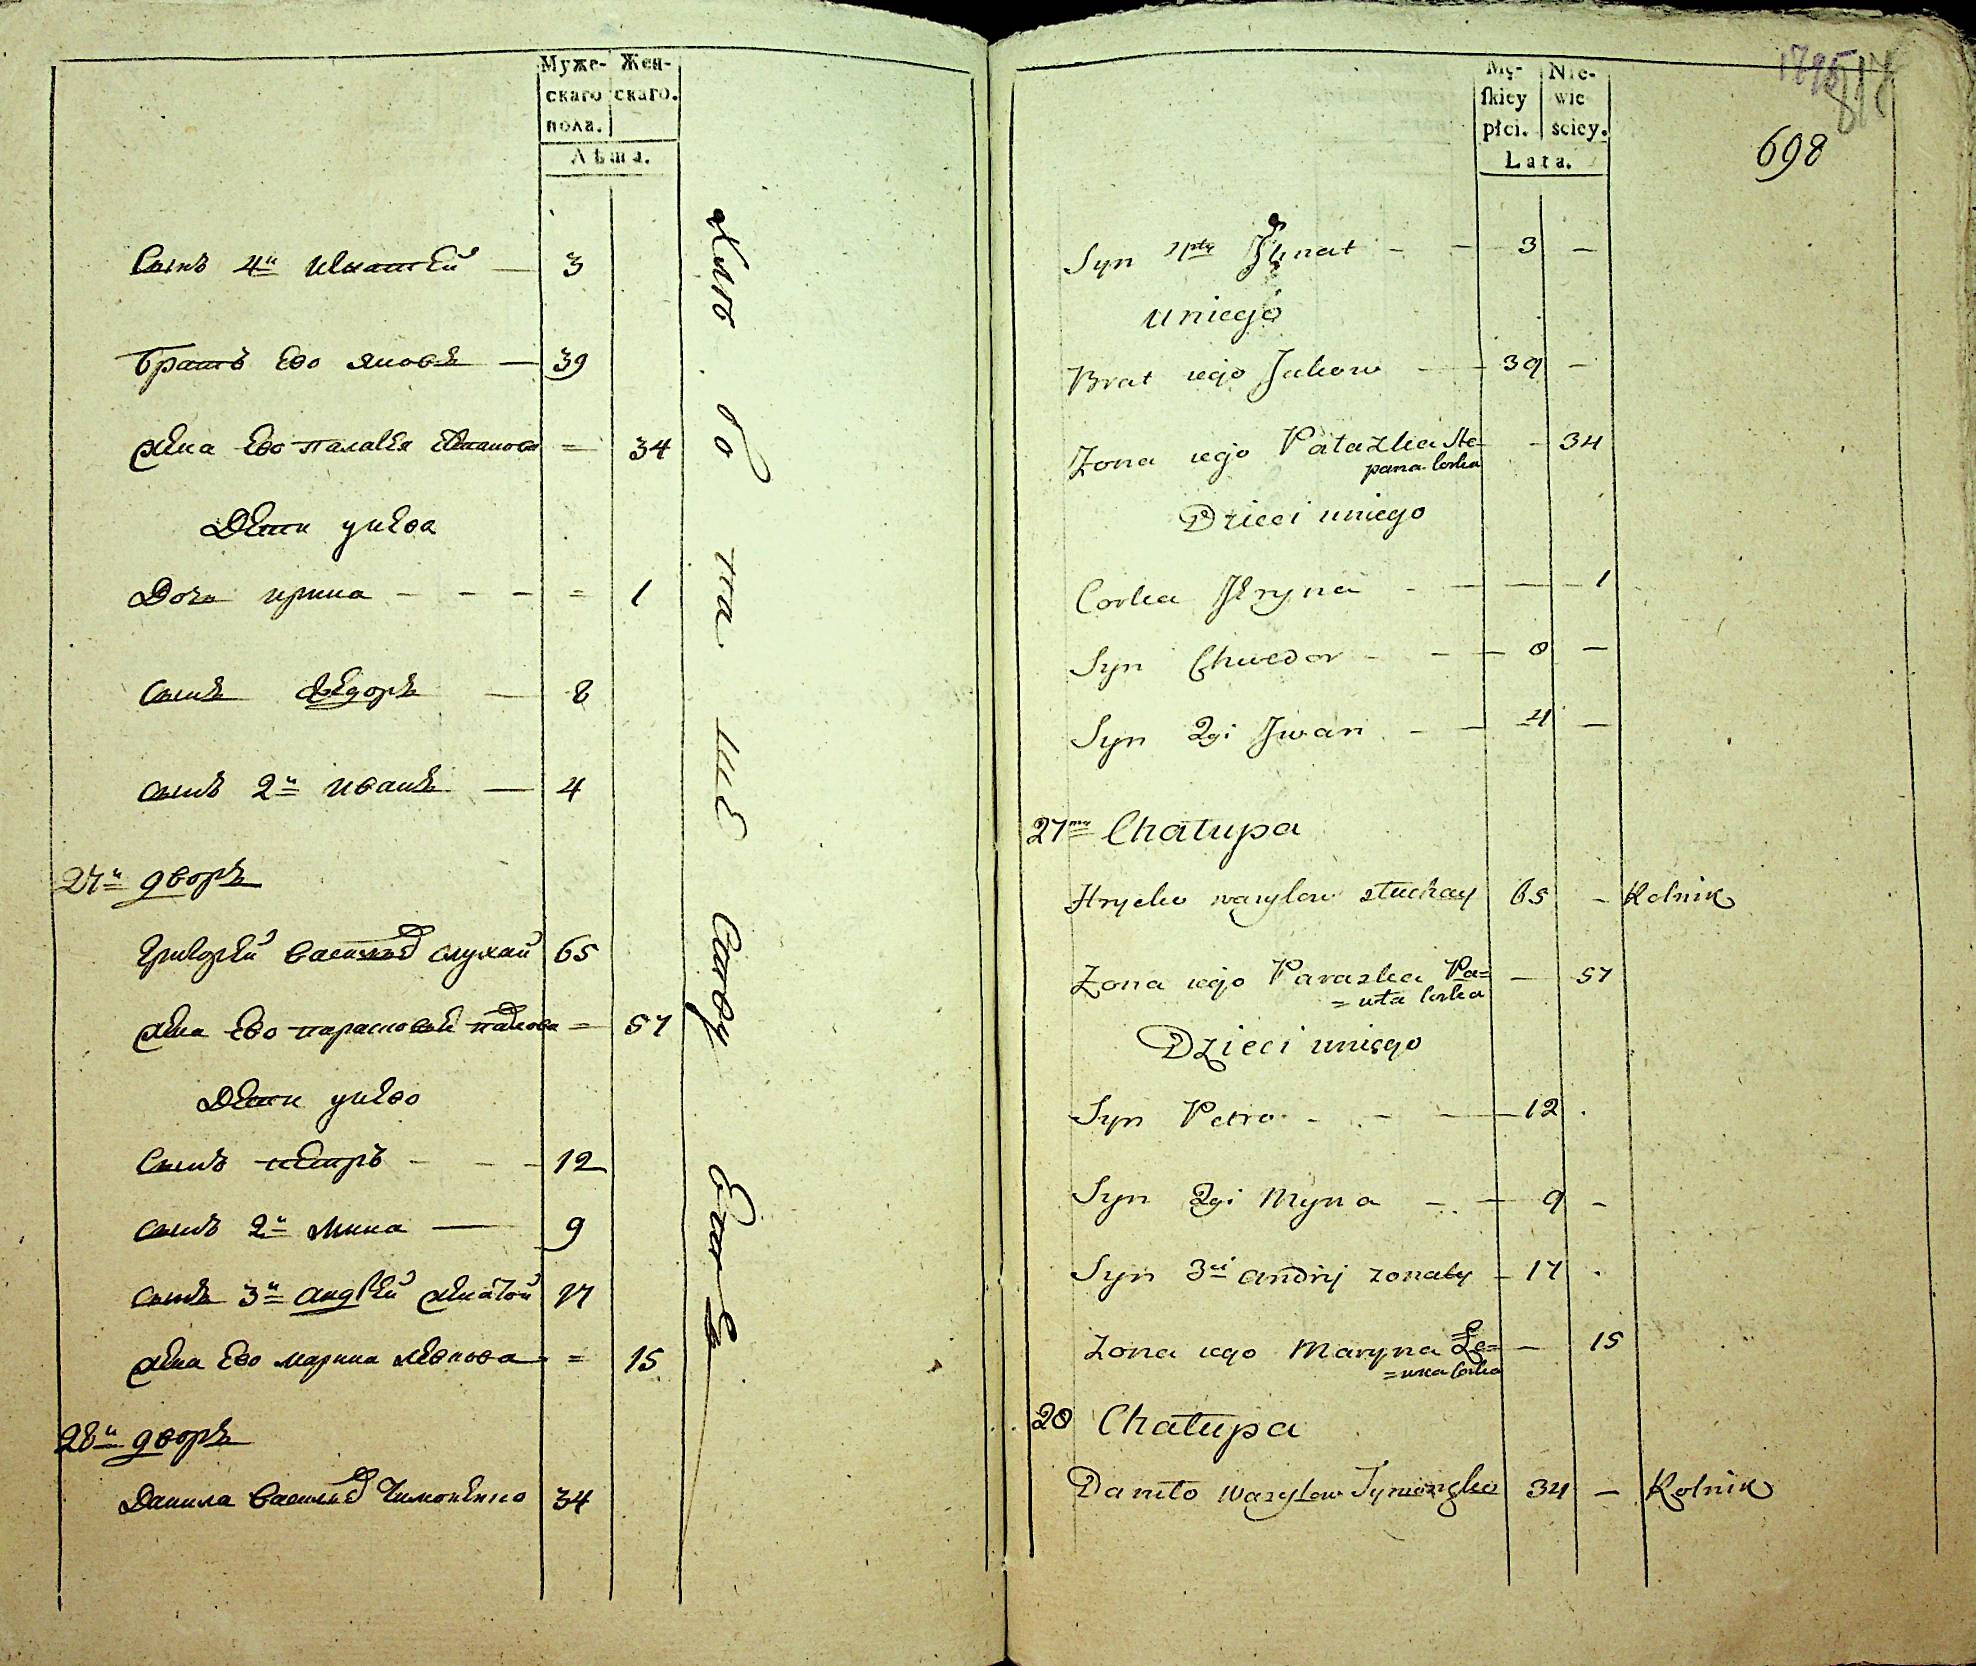 Муже- Жен-
скаго скаго.
пола.
Лѣта.
Сынъ 4й Игнатей — 3
Братъ Ево Яковъ — 39
жена Ево палагея Степанова = 34
Дети унева
Дочь ирина - - - = 1
сынъ Федоръ — 8
сынъ 2й иванъ — 4
27й дворъ
Григорей Васильев слухай 65
жена Ево парасковья павлова = 57
Дети унево
Сынъ петръ - - - 12
сынъ 2й мина — 9
сынъ 3й андрей женатой 17
жена Ево марина левкова = 15
28й дворъ
Данила Васильев Тимоненко 34
Mę- Nie-
skiey wie
płci. ściey.
Lata.
698
Syn 4ty Ihnat - - 3 -
uniego
Brat iego Jakow - 39 -
Zona iego Pałazka Ste-
pana Corka - 34
Dzieci uniego
Corka Jryna - - - 1
Syn Chwedor - - 8 -
Syn 2gi Jwan - - 4 -
27my Chałupa
Hrycko wasylow słuchay 65 - Rolnik
Zona iego Paraska Pa=
=wła Corka - 57
Dzieci uniego
Syn Petro - - - 12 .
Syn 2gi Myna - - 9 -
Syn 3ci andrij zonaty - 17 .
Zona iego Maryna Le=
=wka Corka - 15
28 Chałupa
Daniło wasylow Tymonenko 34 - Rolnik